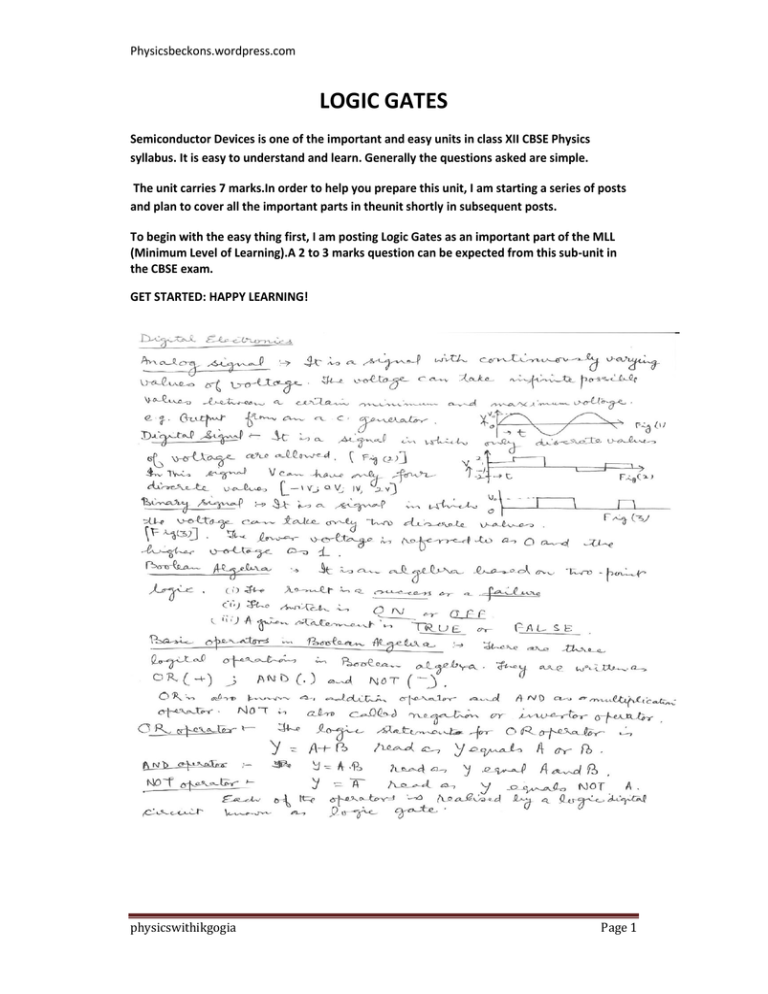 Physicsbeckons.wordpress.com
LOGIC GATES
Semiconductor Devices is one of the important and easy units in class XII CBSE Physics
syllabus. It is easy to understand and learn. Generally the questions asked are simple.
The unit carries 7 marks.In order to help you prepare this unit, I am starting a series of posts
and plan to cover all the important parts in theunit shortly in subsequent posts.
To begin with the easy thing first, I am posting Logic Gates as an important part of the MLL
(Minimum Level of Learning).A 2 to 3 marks question can be expected from this sub-unit in
the CBSE exam.
GET STARTED: HAPPY LEARNING!
Digital Electronics
Analog signal :→ It is a signal with continuously varying
values of voltage. The voltage can take infinite possible
values between a certain minimum and maximum voltage.
e.g. Output from an a c. generator. V 0 → t Fig (1)
Digital Signal – It is a signal in which only discrete values
of voltage are allowed. [Fig (2)] V → t Fig (2)
In this signal V can have only four
discrete values [-1V; 0V; 1V, 2V]
Binary signal :→ It is a signal in which 0 Fig (3)
the voltage can take only two discrete values.
[Fig(3)]. The lower voltage is referred to as 0 and the
higher voltage as 1.
Boolean Algebra :→ It is an algebra based on two-point
logic. (i) The result is a success or a failure
(ii) The switch is ON or OFF.
(iii) A given statement is TRUE or FALSE.
Basic operators in Boolean Algebra :→ There are three
logital operations in Boolean algebra. They are written as
OR (+) ; AND (.) and NOT (‾).
OR is also known as addition operator and AND as a multiplication
operator. NOT is also called negation or invertor operator.
OR operator :- The logic statements for OR operator is
Y = A+B read as Y equals A or B.
AND operator :- Y = A.B read as Y equal A and B.
NOT operator :- Y = A̅ read as Y equals NOT A.
Each of the operators is realised by a logic digital
circuit known as logic gate.
physicswithikgogia
Page 1